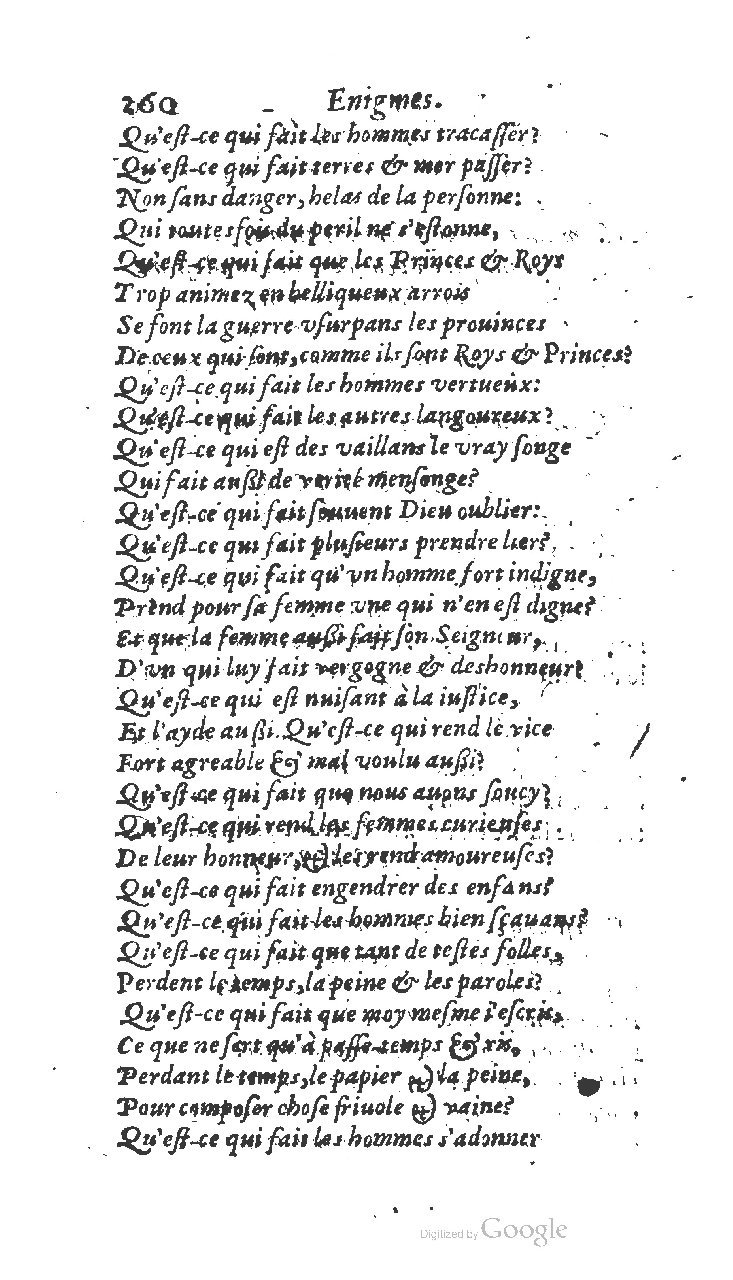 260 Enigmes.
Qu'eſt-ce qui fait les hommes tracaſſer?
Qu'eſt-ce qui fait terres & mer paſſer?
Non ſans danger, helas de la perſonne:
Qui toutesfois du peril ne s'eſtonne,
Qu'eſt-ce qui fait que les Princes & Roys
Trop animez en belliqueux arrois
Se font la guerre vſurpans les prouinces
De ceux qui ſont, comme ils ſont Roys & Princes?
Qu'eſt-ce qui fait les hommes vertueux:
Qu'eſt-ce qui fait les autres langoureux?
Qu'eſt-ce qui eſt des vaillans le vray ſonge
Qui fait auſſi de verité menſonge?
Qu'eſt-ce qui fait ſouuent Dieu oublier:
Qu'eſt-ce qui fait pluſieurs prendre lier?
Qu'eſt-ce qui fait qu'vn homme fort indigne,
Prend pour ſa femme vne qui n'en eſt digne?
Et que la femme auſſi fait ſon Seigneur,
D'vn qui luy fait vergogne & deshonneur?
Qu'eſt-ce qui eſt nuiſant à la iuſtice,
Et l'ayde auſſi. Qu'eſt-ce qui rend le vice
Fort agreable & mal voulu auſſi?
Qu'eſt-ce qui fait que nous auons ſoucy?
Qu'eſt-ce qui rend les femmes curieuſes
De leur honneur, & les rend amoureuſes?
Qu'eſt-ce qui fait engendrer des enfans?
Qu'eſt-ce qui fait les hommes bien ſçauans?
Qu'eſt-ce qui fait que tant de teſtes folles,
Perdent le temps, la peine & les paroles?
Qu'eſt-ce qui fait que moy meſme i'eſcris,
Ce que ne ſert qu'à paſſe-temps & ris,
Perdant le temps, le papier & la peine,
Pour compoſer choſe friuole & vaine?
Qu'eſt-ce qui fait les hommes s'adonner
Digitized by Google